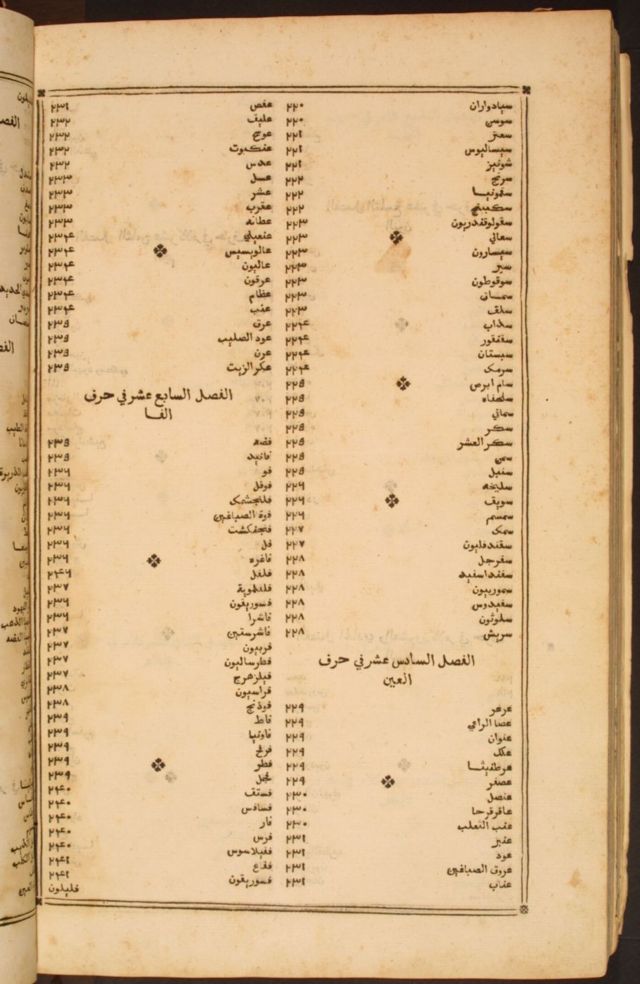 سيادواران ٢٢٠
سوسن ٢٢٠
سعتر ٢٢١
سيساليوس ٢٢١
شونيز ٢٢١
سرنج ٢٢٢
سقمونيا ٢٢٢
سكبينج ٢٢٢
سقولوقندريون ٢٢٣
سمانى ٢٢٣
سيسارون ٢٢٣
سير ٢٢٣
سوقوطون ٢٢٣
سمسانى ٢٢٣
سلق ٢٢٣
سذاب ٢٢٤
سقنقور ٢٢٤
سبستان ٢٢٤
سرمك ٢٢٤
سام ابرص ٢٢٥
سلحفاه ٢٢٥
سمانى ٢٢٥
سكر ٢٢٥
سكر العشر ٢٢٥
سمن ٢٢٥
سنبل ٢٢٥
سليخه ٢٢٦
سويق ٢٢٦
سمسم ٢٢٦
سمك ٢٢٧
سقندفليون ٢٢٧
سفرجل ٢٢٨
سفنداسفيد ٢٢٨
سموريبون ٢٢٨
سفيدوس ٢٢٨
سلوثون ٢٢٨
سريش ٢٢٨
الفصل السادس عشر في حرف
العين
عرعر ٢٢٩
عصا الراعي ٢٢٩
عنوان ٢٢٩
علك ٢٢٩
عرطنيثا ٢٢٩
عصفر ٢٢٩
عنصل ٢٣٠
عاقرقرحا ٢٣٠
عنب الثعلب ٢٣٠
عنبر ٢٣١
عود ٢٣١
عروق الصباغين ٢٣١
عناب ٢٣١
عفص ٢٣١
عليق ٢٣٢
عوسج ٢٣٢
عنكبوت ٢٣٢
عدس ٢٣٢
عسل ٢٣٣
عشر ٢٣٣
عقرب ٢٣٣
عطانه ٢٣٣
عنعيلى ٢٣٤
عالوسيس ٢٣٤
عاليون ٢٣٤
عرقون ٢٣٤
عظام ٢٣٤
عنب ٢٣٤
عرق ٢٣٥
عود الصليب ٢٣٥
عرن ٢٣٥
عكر الزيت ٢٣٥
الفصل السابع عشر في حرف
الفا
فضه ٢٣٥
فانيد ٢٣٥
فو ٢٣٥
فوفل ٢٣٦
فلنجشمك ٢٣٦
فوة الصباغين ٢٣٦
فنجنكشت ٢٣٦
فل ٢٣٦
فاغره ٢٣٦
فلفل ٢٤٦
فلفلموية ٢٣٧
فسوريقون ٢٣٦
فاشرا ٢٣٦
فاشرستين ٢٣٧
فربيون ٢٣٧
فطرساليون ٢٣٧
فيلزهرج ٢٣٧
فراسيون ٢٣٨
فوذنج ٢٣٨
فاط ٢٣٩
فاونيا ٢٣٩
فرفخ ٢٣٩
فطر ٢٣٩
فجل ٢٣٩
فستق ٢٤٠
فسافس ٢٤٠
فار ٢٤٠
فرس ٢٤٠
ففيلاسوس ٢٤١
فقاع ٢٤١
فسوريقون ٢٤١
فليلون